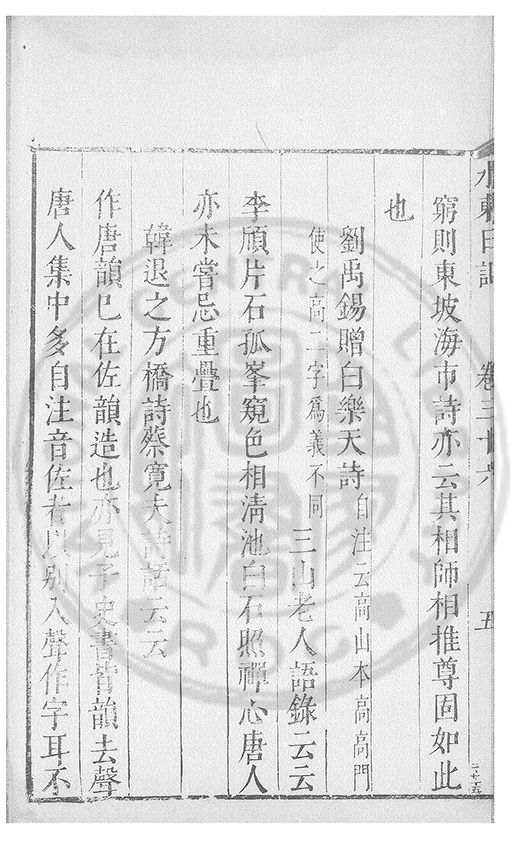 水東日記 卷三十六 五
窮則東坡海市詩亦云其相師相推尊固如此
也
劉禹錫贈白樂天詩自注云高山本高高門
使之高二字爲義不同三山老人語錄云云
李頎片石孤峯窺色相清池白石照禪心唐人
亦未嘗忌重疊也
韓退之方橋詩蔡寬夫詩話云云
作唐韻已在佐韻造也亦見子史書皆韻去聲
唐人集中多自注音佐者以別入聲作字耳不